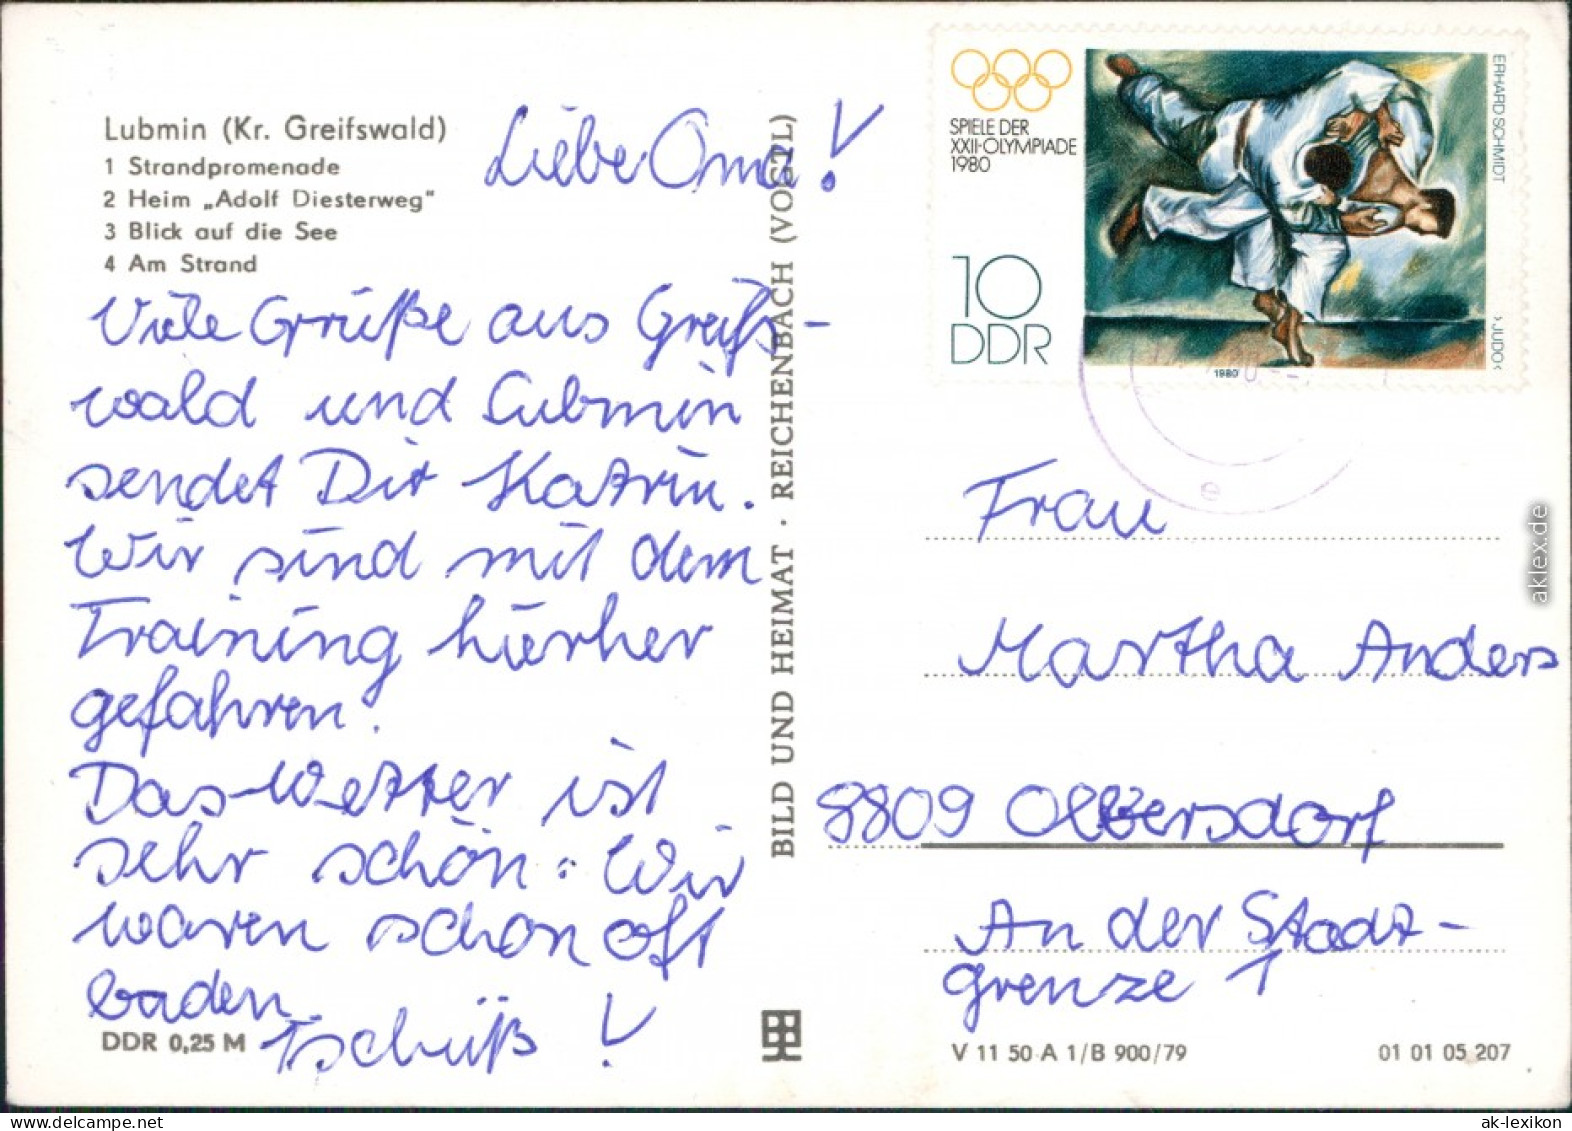 Lubmin (Kr. Greifswald)
1 Strandpromenade
2 Heim „Adolf Diesterweg"
3 Blick auf die See
4 Am Strand
Liebe Oma!
Viele Grüße aus Greifs-
wald und Lubmin
sendet Dir Katrin.
Wir sind mit dem
Training hierher
gefahren.
Das Wetter ist
sehr schön. Wir
waren schon oft
baden.
Tschüß!
DDR 0,25 M
BILD UND HEIMAT · REICHENBACH (VOGTL)
SPIELE DER
XXII·OLYMPIADE
1980
10
DDR
ERHARD SCHMIDT
›JUDO‹
1980
e
Frau
Martha Anders
8809 Olbersdorf
An der Stadt-
grenze 1
V 11 50 A 1/B 900/79
01 01 05 207
aklex.de
ak-lexikon